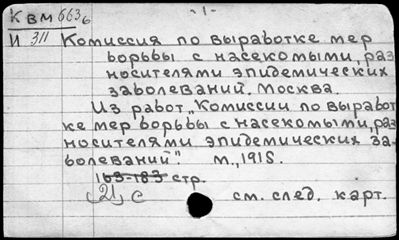 КВМ 663б -1-
И 311 Комиссия по выработке мер
борьбы с насекомыми, раз
носителями эпидемических
заболеваний. Москва.
Из работ „Комиссии по выработ
ке мер борьбы с насекомыми, раз
носителями эпидемических за-
болеваний". М., 1915.
163-183 стр.
21 с см. след. карт.